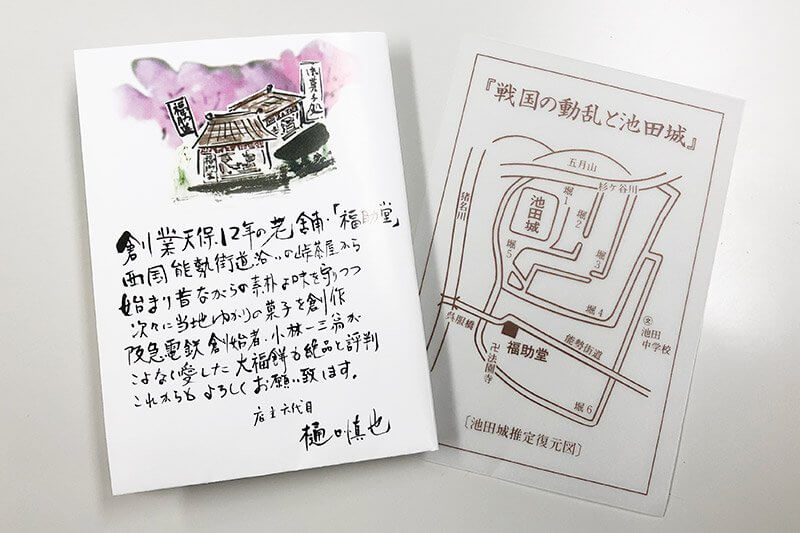 福助堂
御菓子処
創業天保12年の老舗・「福助堂」
西国能勢街道沿いの峠茶屋から
始まり昔ながらの素朴な味を守りつつ
次々に当地ゆかりの菓子を創作
阪急電鉄創始者・小林一三翁が
こよなく愛した大福餅も絶品と評判
これからもよろしくお願い致します。
店主六代目
樋口慎也
『戦国の動乱と池田城』
五月山
杉ヶ谷川
猪名川
池田城
堀1
堀2
堀3
堀5
堀4
呉服橋
福助堂
能勢街道
文
池田
中学校
卍法園寺
堀6
〔池田城推定復元図〕